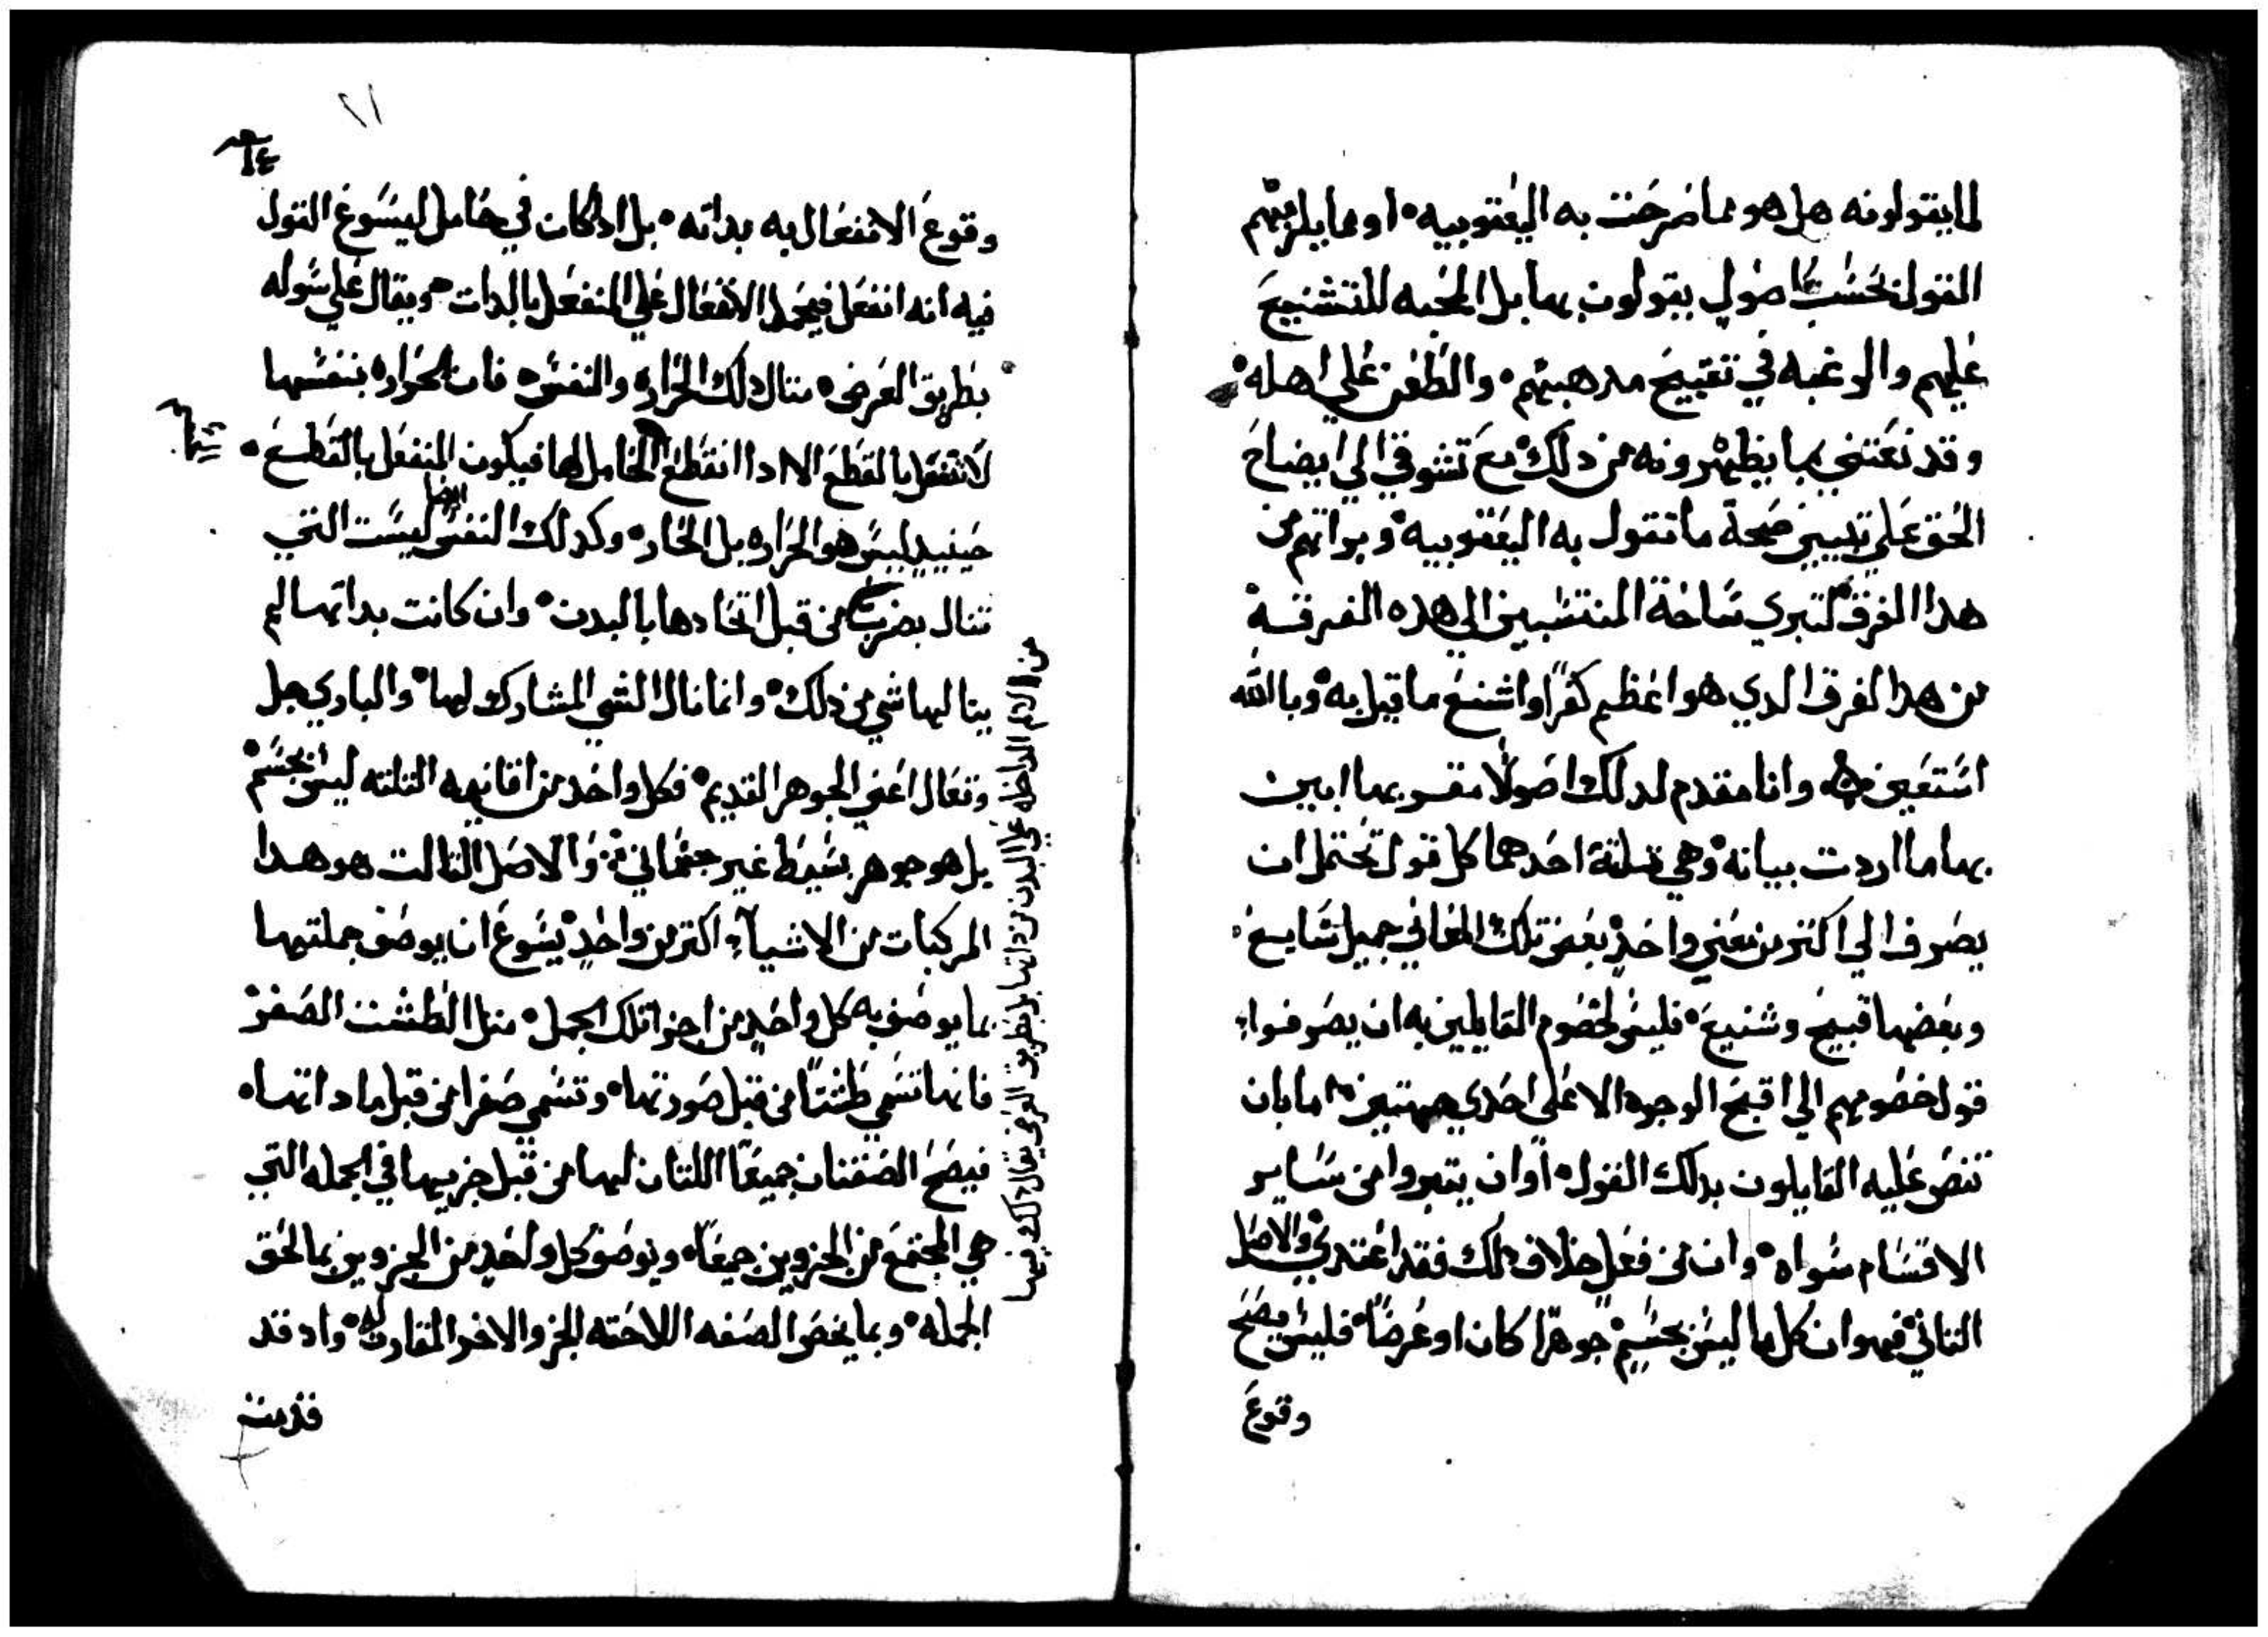 لما يقولونه هل هو مما صرحت به اليعقوبيه او مما يلزمهم
القول بحسب اصول يقولون بها بل المحبه للتشنيع
عليهم والرغبه في تقبيح مدهبهم والطعن علي اهله
وقد نعتني بما يظهرونه من دلك مع تشوقي الي ايضاح
الحق علي تبيين صحة ما تقول به اليعقوبيه وبراتهم من
هدا الفرق لتبري ساحة المنتسبين الي هده الفرقة
من هدا الفرق الدي هو اعظم كفرًا واشنع ما قيل به وبالله
استعين وانا مقدم لدلك اصولًا مقـ بها ابين
بها ما اردت بيانه وهي تلتة احدهما كل قول تحتمل ان
يصرف الي اكتر من معني واحد بعض تلك المعاني جميل شايع
وبعضها قبيح وشنيع فليس لخصوم القايلين به ان يصرفوا
قول خصومهم الي اقبح الوجوه الا علي احدي جهتين اما بان
تنص عليه القايلون بدلك القول او ان يتبروا من ساير
الاقسام سواه وان من فعل خلاف دلك فقد اعتدي والاصل
التاني فهو ان كل ما ليس بجسم جوهرًا كان او عرضًا فليس يصح
وقوع
٢١
٦٤
وقوع الانفعال به بداته بل ادا كان في حامل ليسوغ القول
فيه انه انفعل فيحمل الانفعال علي المنفعل بالدات ويقال علي سوله
بطريق العرض متال دلك الحراره والنفس فان الحراره بنفسها
لا تنفعل بالقطع الا ادا انقطع الحامل لها فيكون المنفعل بالقطع
حينيد ليس هو الحراره بل الحار وكدلك النفس ايضا ليست التي
تنال بضرب من قبل اتحادها بالبدن وان كانت بداتها لم
ينالها شي من دلك وانما نال الشي المشارك لها والباري جل
وتعال اعني الجوهر القديم فكل واحد من اقانيمه التلته ليس بجسم
بل هو جوهر بسيط غير جتماني والاصل التالت هو هدا
المركبات من الاشياء اكتر من واحد يسوغ ان يوصف جملتها
بما يوصف به كل واحد من اجزا تلك الجمل متل الطشت الصفر
فانها تسمي طشتًا من قبل صورتها وتسمي صفرا من قبل ماداتها
فيصح الصفتان جميعًا اللتان لها من قبل جزييها في الجمله التي
هي المجتمع من الجزوين جميعًا ويوصف كل واحد من الجزوين بما لحق
الجمله وبما يخص الصفه اللاحقه الجز والاخر المقارن له واد قد
قدمت
من الالم الداخله علي البدن من داتها بل بطريق العرض يقال دلك فيها